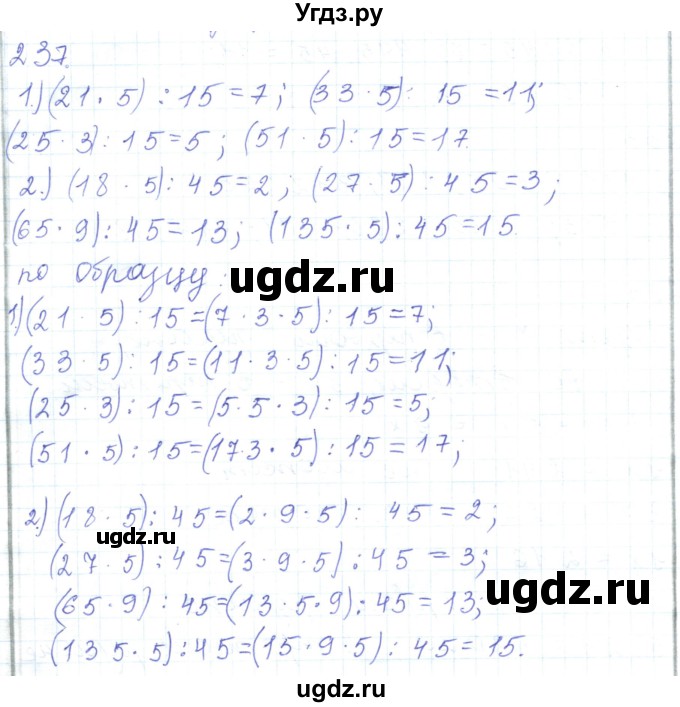 Угдз.ру
237.
1.) (21 · 5) : 15 = 7; (33 · 5) : 15 = 11;
(25 · 3) : 15 = 5; (51 · 5) : 15 = 17.
2.) (18 · 5) : 45 = 2; (27 · 5) : 45 = 3;
(65 · 9) : 45 = 13; (135 · 5) : 45 = 15.
по образцу:
ugdz.ru
1) (21 · 5) : 15 = (7 · 3 · 5) : 15 = 7;
(33 5) : 15 = (11 · 3 · 5) : 15 = 11;
(25 · 3) : 15 = (5 · 5 · 3) : 15 = 5;
(51 · 5) : 15 = (17 3 · 5) : 15 = 17;
2.) (18 · 5) : 45 = (2 · 9 · 5) : 45 = 2;
ugdz.ru
(27 · 5) : 45 = (3 · 9 · 5) : 45 = 3;
ugdz.ru
(65 · 9) : 45 = (13 · 5 · 9) : 45 = 13;
(135 · 5) : 45 = (15 · 9 · 5) : 45 = 15.
ugdz.ru